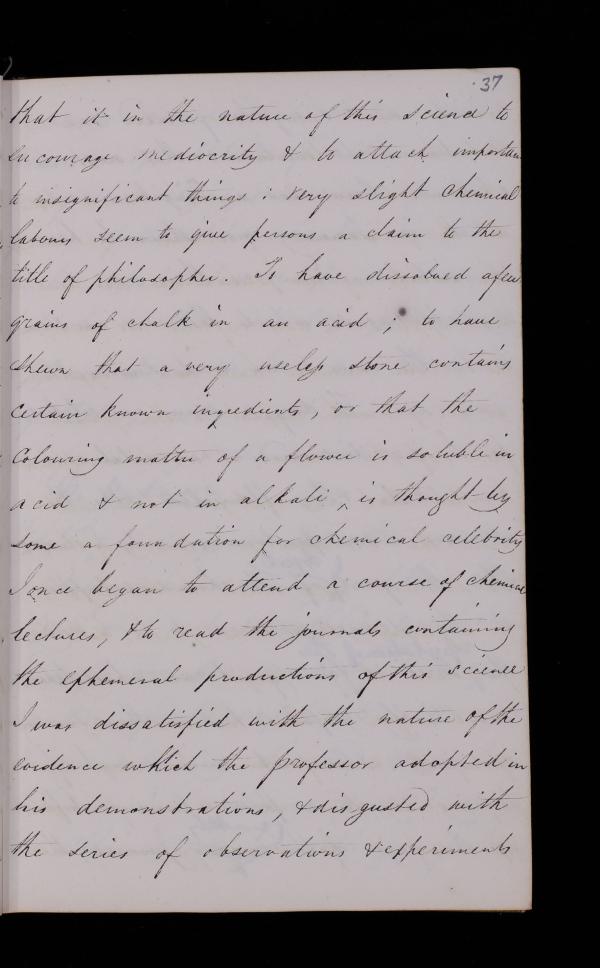 37
that it in the nature of this science to
encourage mediocrity & to attach importan
to insignificant things : very slight chemical
labours seem to give persons a claim to the
title of philosopher. To have dissolved a few
grains of chalk in an acid ; to have
shewn that a very useless stone contains
certain known ingredients, or that the
colouring matter of a flower is soluble in
acid & not in alkali ^ is thought by
some a foundation for chemical celebrity
I once began to attend a course of chemical
lectures, & to read the journals containing
the ephemeral productions of this science
I was dissatisfied with the nature of the
evidence which the professor adopted in
his demonstrations, & disgusted with
the series of observations & experiments